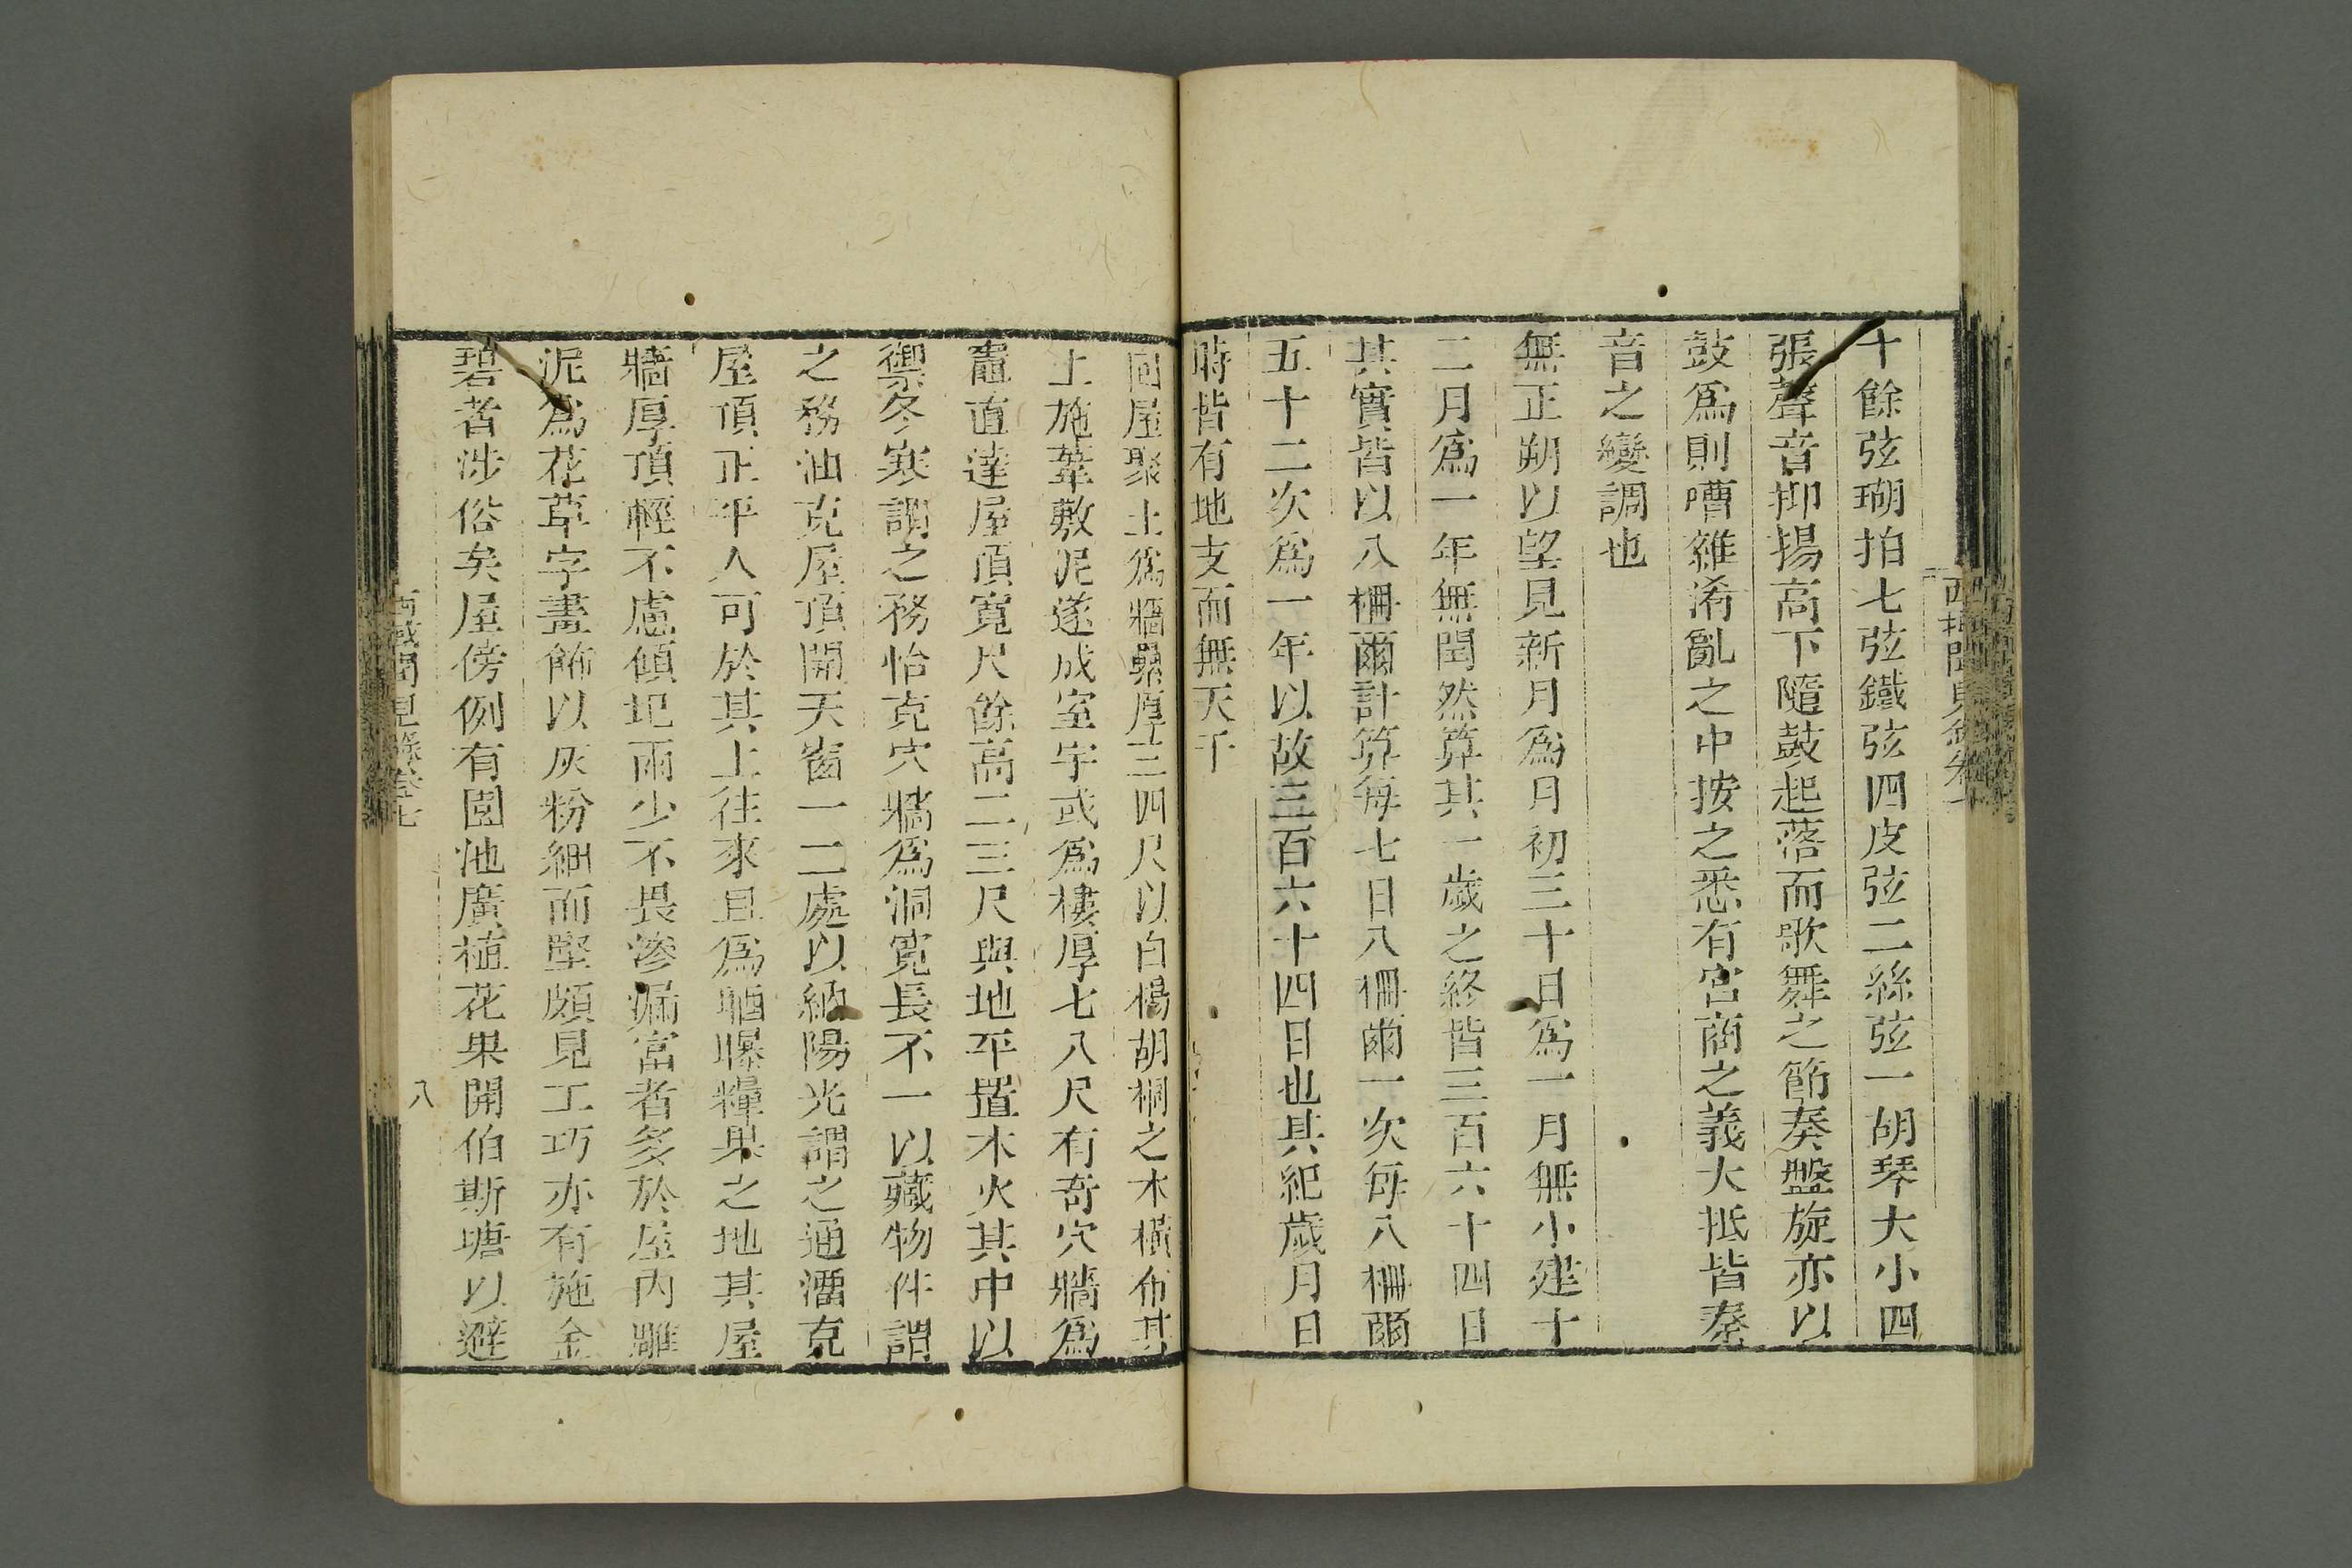 十餘弦瑚拍七弦鐵弦四皮弦二絲弦一胡琴大小四
張聲音抑揚高下隨鼓起落而歌舞之節奏盤旋亦以
鼓爲則嘈雜淆亂之中按之悉有宮商之義大抵皆秦
音之變調也
無正朔以望見新月爲月初三十日爲一月無小建十
二月爲一年無閏然算其一歲之終皆三百六十四日
其實皆以八柵爾計算每七日八柵爾一次每八柵爾
五十二次爲一年以故三百六十四日也其紀歲月日
時皆有地支而無天干
回屋聚土爲牆纍厚三四尺以白楊胡桐之木橫布其
上施葦敷泥遂成室宇或爲樓厚七八尺有奇穴牆爲
竈直達屋頂寬尺餘高二三尺與地平置木火其中以
禦冬寒謂之務怡克穴牆爲洞寬長不一以藏物件謂
之務油克屋頂開天窗一二處以納陽光謂之通溜克
屋頂正平人可於其上往來且爲晒曝糧果之地其屋
牆厚頂輕不慮傾圯雨少不畏滲漏富者多於屋內雕
泥爲花草字畫飾以灰粉細而堅頗見工巧亦有施金
碧者涉俗矣屋傍例有園池廣植花果開伯斯塘以避
西域聞見錄卷七
八